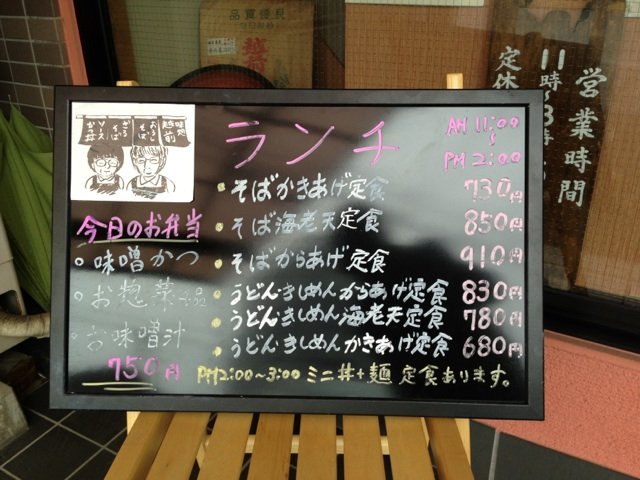 品質優良
越前
営業時間
11時~3時
定休
味処
越前
おろし
そば
ざる
そば
ソース
かつ丼
ランチ
AM 11:00
~
PM 2:00
そばかきあげ定食 730円
そば海老天定食 850円
そばからあげ定食 910円
うどん・きしめんからあげ定食 830円
うどん・きしめん海老天定食 780円
うどん・きしめんかきあげ定食 680円
今日のお弁当
味噌かつ
お惣菜4品
お味噌汁
750円
PM2:00~3:00 ミニ丼+麺 定食あります。